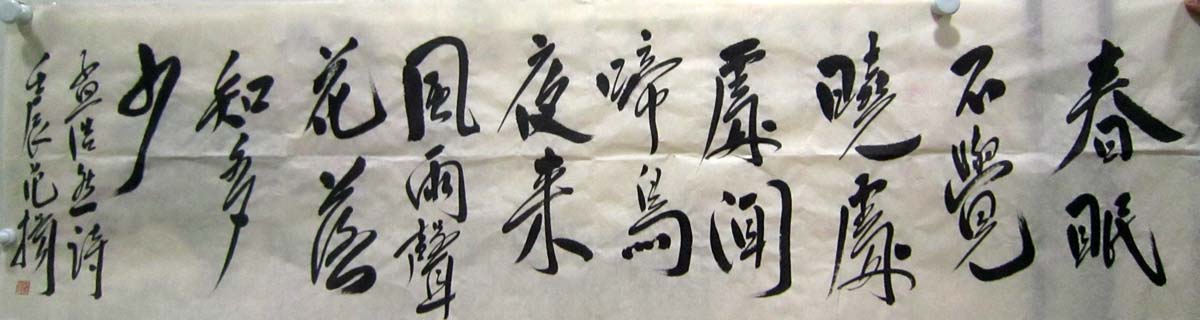 春眠
不覺
曉處
處聞
啼鳥
夜来
風雨聲
花落
知多
少
孟浩然詩
壬辰范撝